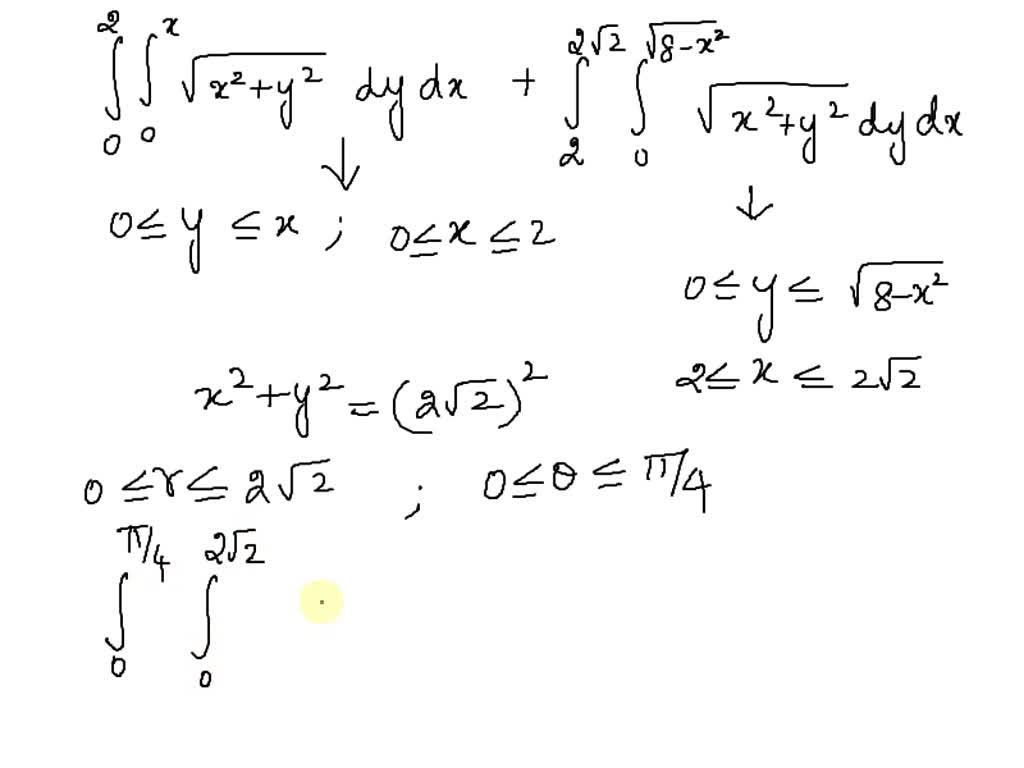 ∫₀² ∫₀ˣ √(x²+y²) dy dx + ∫₂^(2√2) ∫₀^(√(8-x²)) √(x²+y²) dy dx
↓ ↓
0 ≤ y ≤ x ; 0 ≤ x ≤ 2
0 ≤ y ≤ √(8-x²)
2 ≤ x ≤ 2√2
x²+y² = (2√2)²
0 ≤ r ≤ 2√2 ; 0 ≤ θ ≤ π/4
∫₀^(π/4) ∫₀^(2√2)